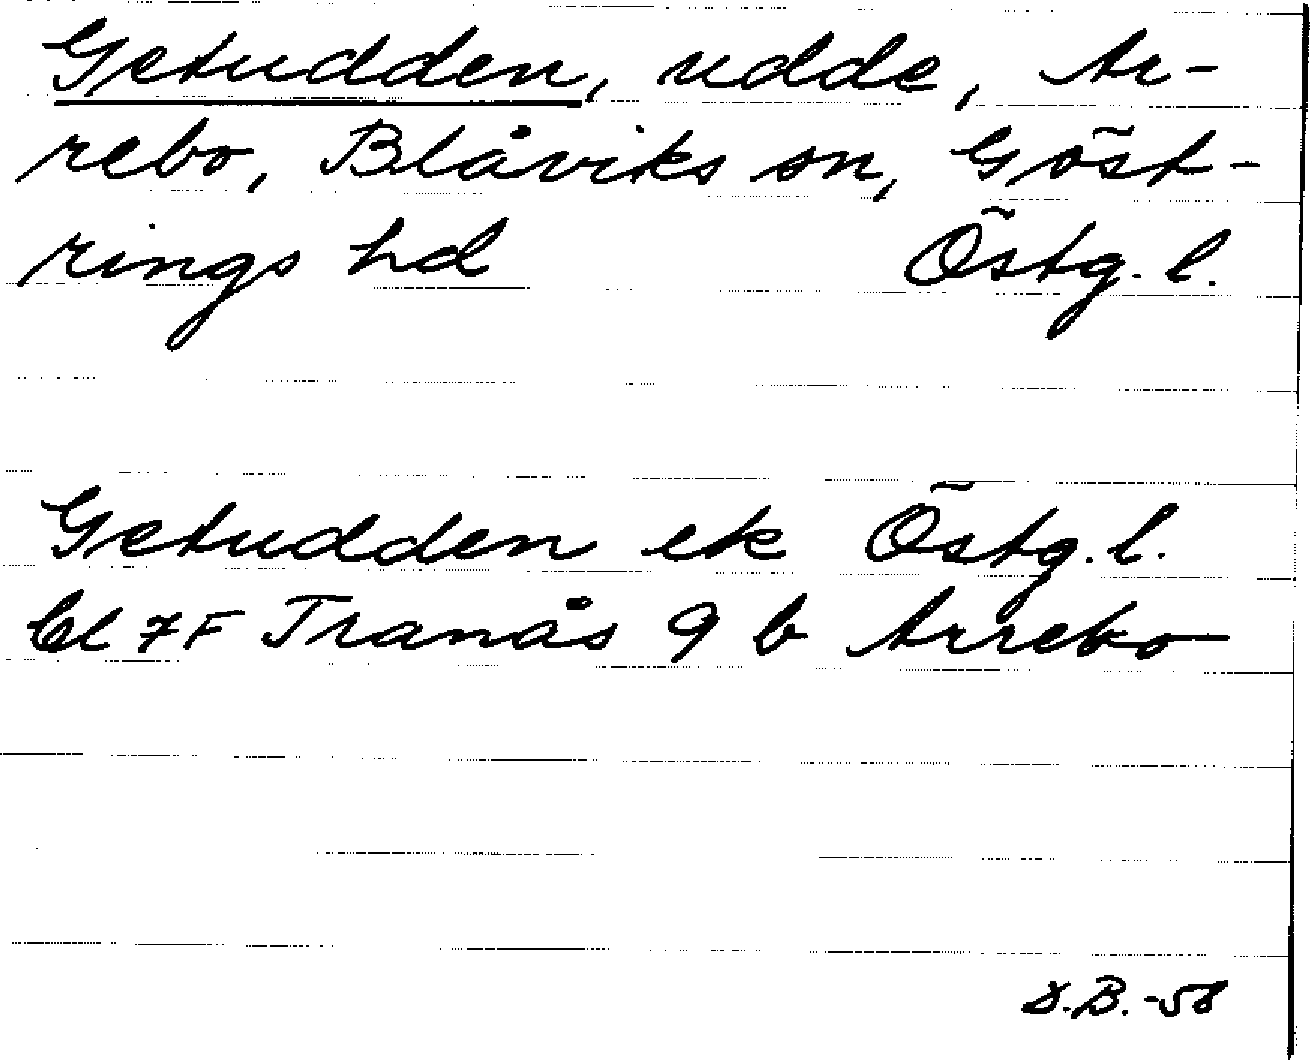 Getudden, udde, Ar-
rebo, Blåviks sn, Göst-
rings hd Östg. l.
Getudden ek Östg. l.
bl 7F Tranås 9 b Arrebo
D.B. -58